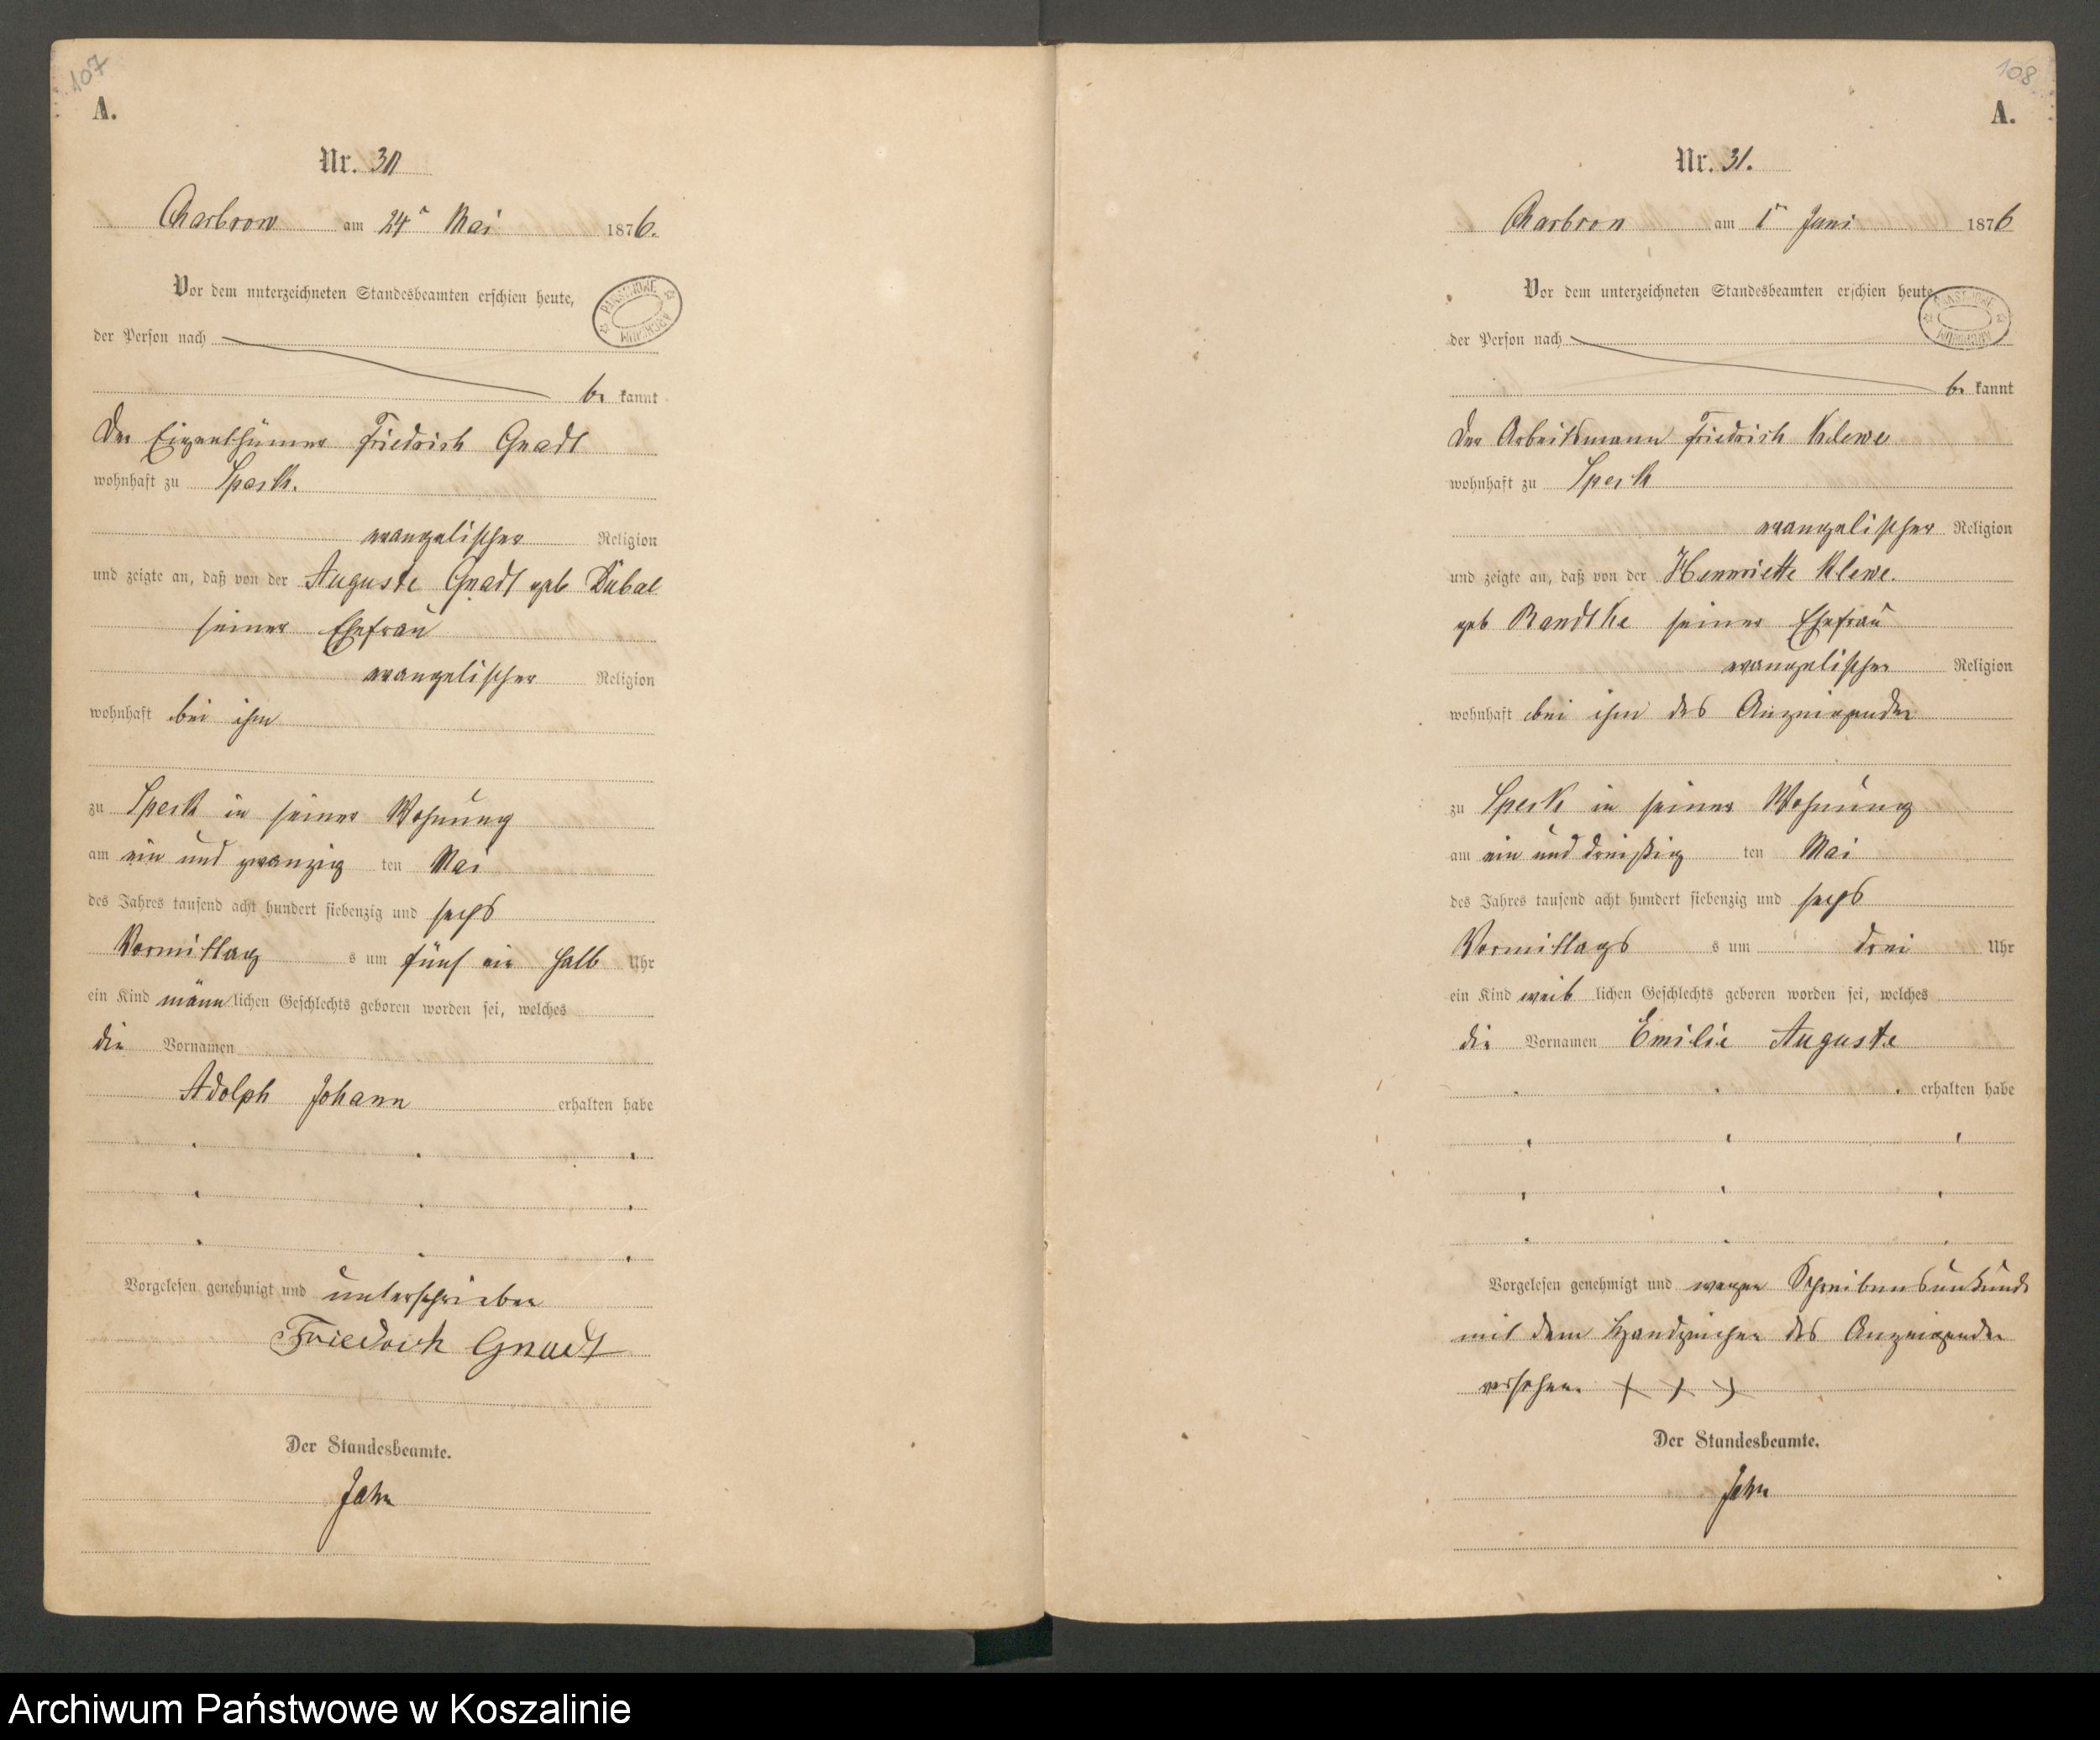 107
A.
Nr. 30
Charbrow am 24n Mai 1876.
Vor dem unterzeichneten Standesbeamten erschien heute,
der Person nach
be kannt
Der Eigenthümer Friedrich Gnadt
wohnhaft zu Speck.
evangelischer Religion
und zeigte an, daß von der Auguste Gnadt geb Dubal
seiner Ehefrau
evangelischer Religion
wohnhaft bei ihm
zu Speck in seiner Wohnung
am ein und zwanzig ten Mai
des Jahres tausend acht hundert siebenzig und sechs
Vormittag s um fünf ein halb Uhr
ein Kind männ lichen Geschlechts geboren worden sei, welches
die Vornamen
Adolph Johann erhalten habe
Vorgelesen genehmigt und unterschrieben
Friedrich Gnadt
Der Standesbeamte.
Jahn
108
A.
Nr. 31.
Charbrow am 1n Juni 1876
Vor dem unterzeichneten Standesbeamten erschien heute,
der Person nach
be kannt
Der Arbeitsmann Friedrich Klewe
wohnhaft zu Speck
evangelischer Religion
und zeigte an, daß von der Henriette Klewe.
geb Randtke seiner Ehefrau
evangelischer Religion
wohnhaft bei ihm des Anzeigender
zu Speck in seiner Wohnung
am ein und dreißig ten Mai
des Jahres tausend acht hundert siebenzig und sechs
Vormittags s um drei Uhr
ein Kind weib lichen Geschlechts geboren worden sei, welches
die Vornamen Emilie Auguste
erhalten habe
Vorgelesen genehmigt und wegen Schreibensunkunde
mit dem Handzeichen des Anzeigender
versehen. + + +
Der Standesbeamte.
Jahn
Archiwum Państwowe w Koszalinie